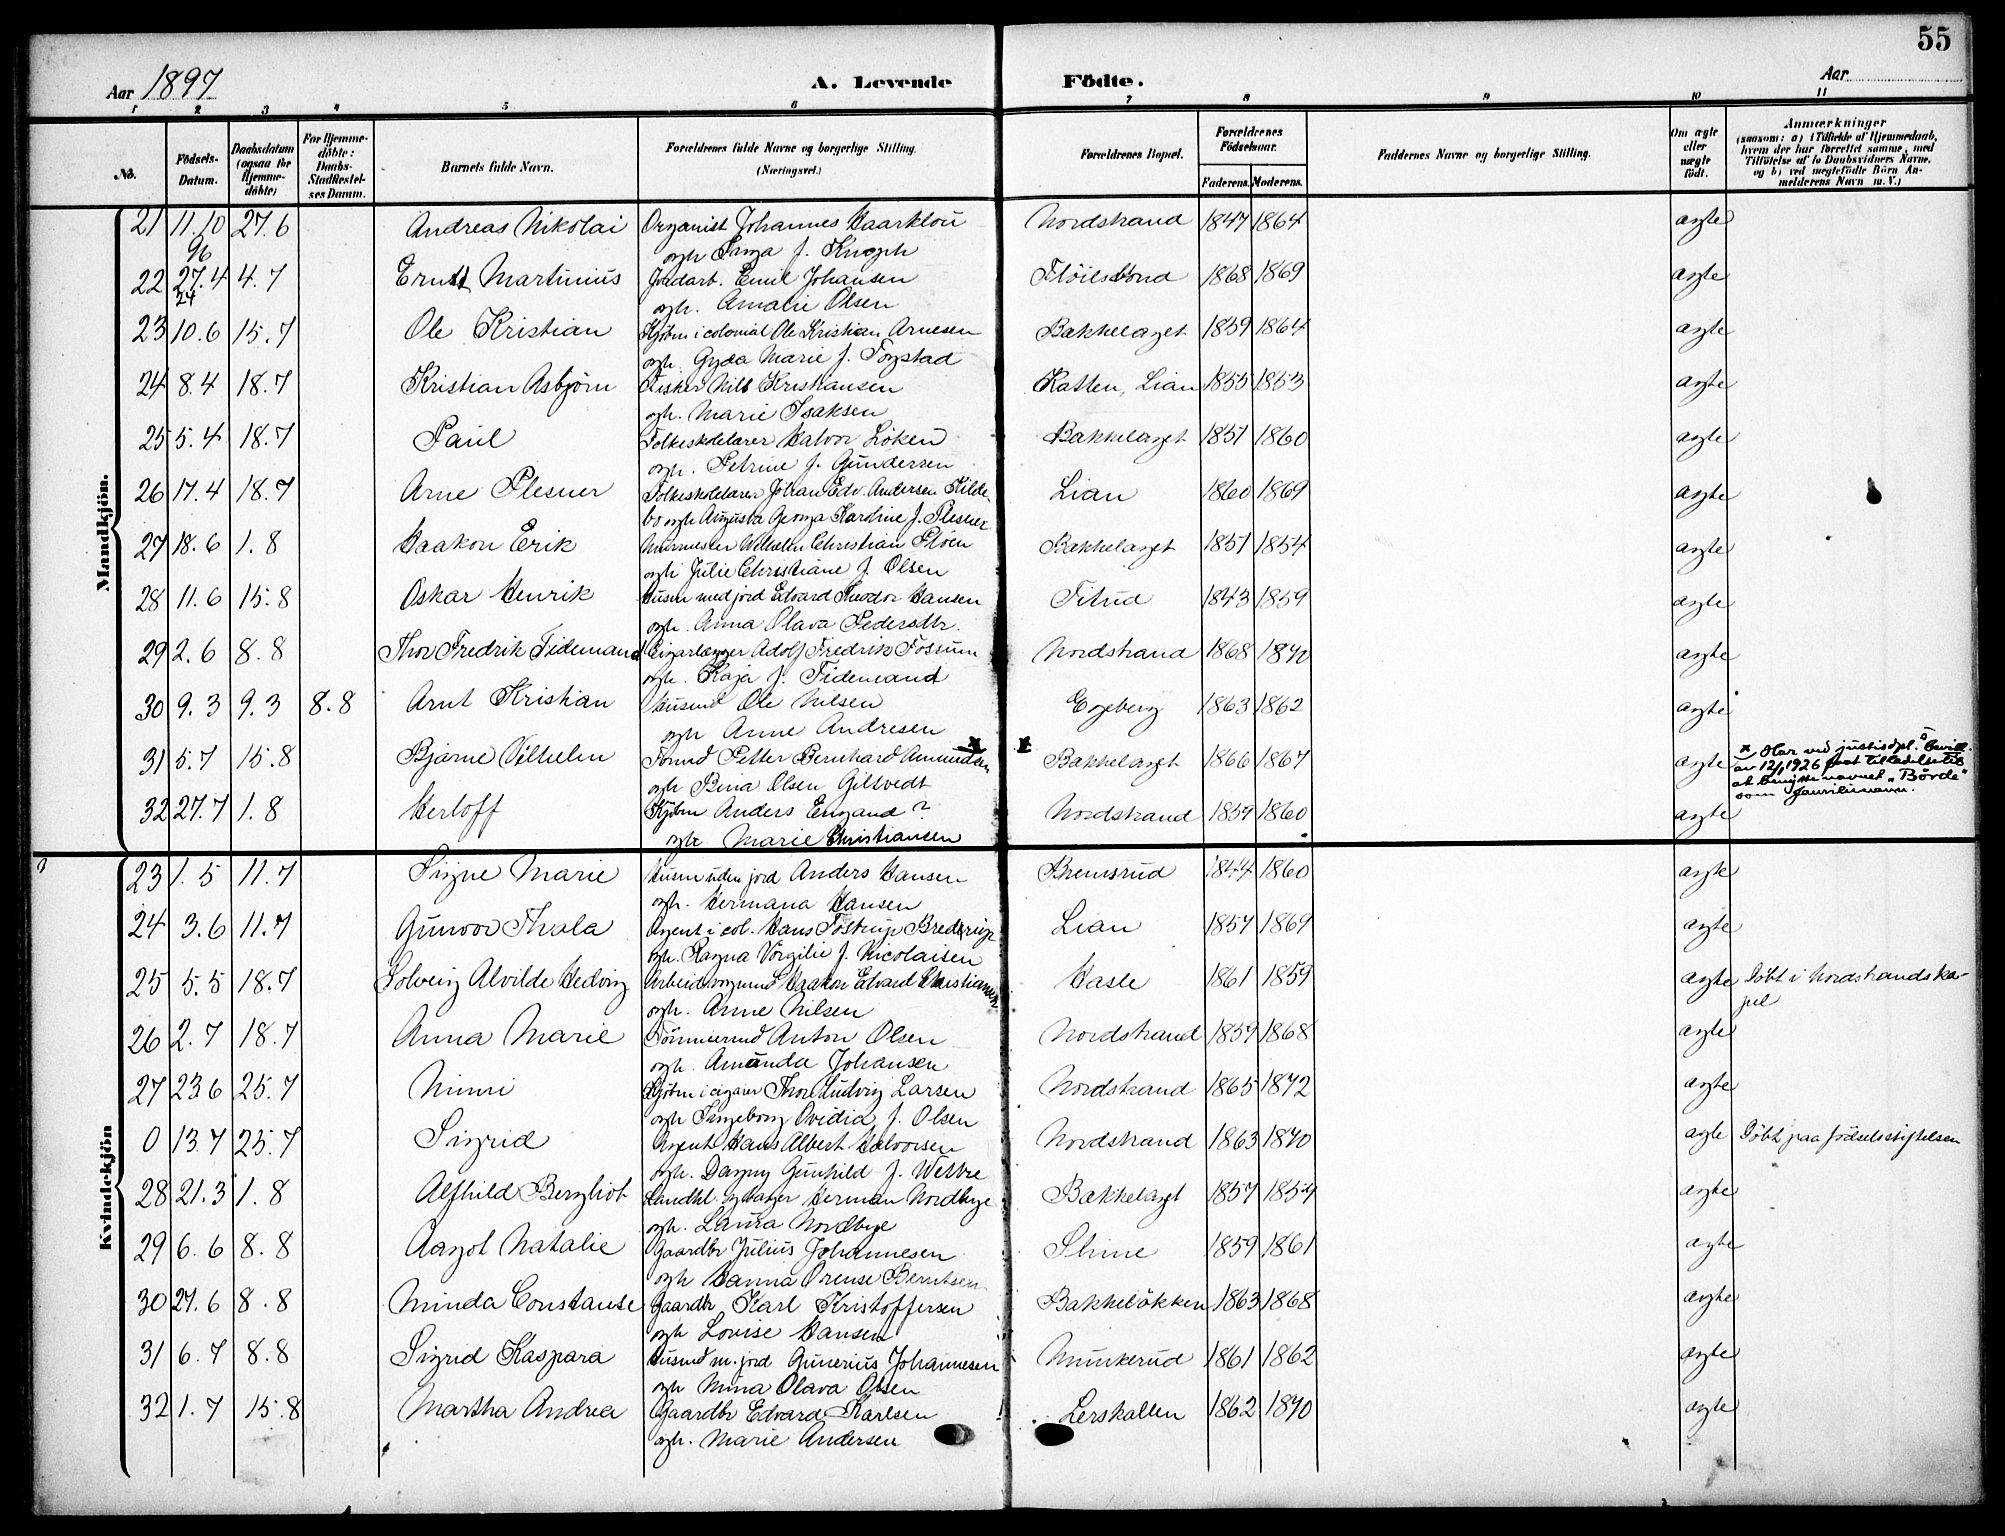 55
Aar 1897 A. Levende Födte. Aar
1 2 3 4 5 6 7 8 9 10 11
No. Födsels-Datum. Daabsdatum (ogsaa for Hjemme-döbte) For Hjemme-döbte: Daabs-Stadfæstel-ses Datum. Barnets fulde Navn. Forældrenes fulde Navne og borgerlige Stilling. (Næringsvei.) Forældrenes Bopæl. Forældrenes Födselsaar. Faderens. Moderens. Faddernes Navne og borgerlige Stilling. Om ægte eller uægte födt. Anmærkninger (saasom: a) i Tilfælde af Hjemmedaab, hvem der har forrettet samme, med Tilföielse af to Daabsvidners Navne, og b) ved uegtefödte Börn An-melderens Navn m. V.)
Mandkjön.
21 11.10 96 27.6 Andreas Nikolai Organist Johannes Haarklou Nordstrand 1847 1864 ægte
ogh Inga f.
22 27.4 24 4.7 Ernst Martinius Jordarb. Emil Johansen 1868 1869 ægte
ogh. Amalie Olsen
23 10.6 15.7 Ole Kristian Kjöbm i colonial Ole Kristian Arnesen Bakkelaget 1859 1864 ægte
ogh. Gyda Marie f. Fogstad
24 8.4 18.7 Kristian Asbjörn Fisker Nils Kristiansen Katten, Lian 1855 1853 ægte
ogh. Marie Isaksen
25 5.4 18.7 Paul Folkeskolelærer Halvor Löken Bakkelaget 1851 1860 ægte
ogh. Petrine f. Gundersen
26 17.4 18.7 Arne Plesner Folkeskolelærer Johan Edv. Andersen Kilde Lian 1860 1869 ægte
bo ogh Augusta Georga Kardine f. Plesner
27 18.6 1.8 Haakon Erik Murmester Wilhelm Christian Plöen Bakkelaget 1851 1854 ægte
ogh Julie Christiane f. Olsen
28 11.6 15.8 Oskar Henrik Husm med jord Edvard Theodor Hansen 1843 1859 ægte
ogh. Anna Olava Pedersdtr.
29 2.6 8.8 Thor Fredrik Tidemand Cigarlægger Adolf Fredrik Fossum Nordstrand 1868 1870 ægte
ogh. Kaja f. Tidemand
30 9.3 9.3 8.8 Arnt Kristian Husmd Ole Nilsen Egeberg 1863 1862 ægte
ogh Anne Andresen
31 5.7 15.8 Bjarne Vilhelm Formd Petter Bernhard Amundsen x x Bakkelaget 1866 1867 ægte x Har ved justisdpt.s bevill.
ogh Bina Olsen Giltvedt av 12/1 1926 faat tilladelse til
at benytte navnet „Börde"
som familienavn.
32 27.7 1.8 Herloff Kjöbm Anders Engand? Nordstrand 1857 1860 ægte
ogh Marie Christiansen
Kvindekjön
23 1.5 11.7 Signe Marie Husm uden jord Anders Hansen Bremsrud 1844 1860 ægte
ogh. Hermana Hansen
24 3.6 11.7 Gunvor Thola Agent i col. Hans Fostrup Lian 1857 1869 ægte
ogh. Ragna Virgilie f. Nicolaisen
25 5.5 18.7 Solveig Alvilde Hedvig Arbeidsmand Haakon Edvard Christiansen Hasle 1861 1859 ægte Döbt i Nordstrands ka-
ogh. Anne Nilsen pel
26 2.7 18.7 Anna Marie Tömmermd Anton Olsen Nordstrand 1857 1868 ægte
ogh. Amanda Johansen
27 23.6 25.7 Mimi Kjöbm i cigarer Thore Ludvig Larsen Nordstrand 1865 1872 ægte
ogh Ingeborg Ovidia f. Olsen
0 13.7 25.7 Sigrid Agent Hans Albert Halvorsen Nordstrand 1863 1870 ægte Döbt paa födselsstiftelsen
ogh. Dagny Gunhild f. Westre
28 21.3 1.8 Alfhild Bergliot Landhl. Herman Nordbye Bakkelaget 1857 1854 ægte
ogh. Laura Nordbye
29 6.6 8.8 Aagot Natalie Gaardbr Julius Johannesen 1859 1861 ægte
ogh Hanna Orense Berntsen
30 27.6 8.8 Minda Constanse Gaardbr Karl Kristoffersen Bakkelökken 1863 1868 ægte
ogh Lovise Hansen
31 6.7 8.8 Sigrid Kaspara Husmd m. jord Gunerius Johannesen Munkerud 1861 1862 ægte
ogh Mina Olava Olsen
32 1.7 15.8 Martha Andrea Gaardbr Edvard Karlsen Lerskallen 1862 1870 ægte
ogh. Marie Andersen